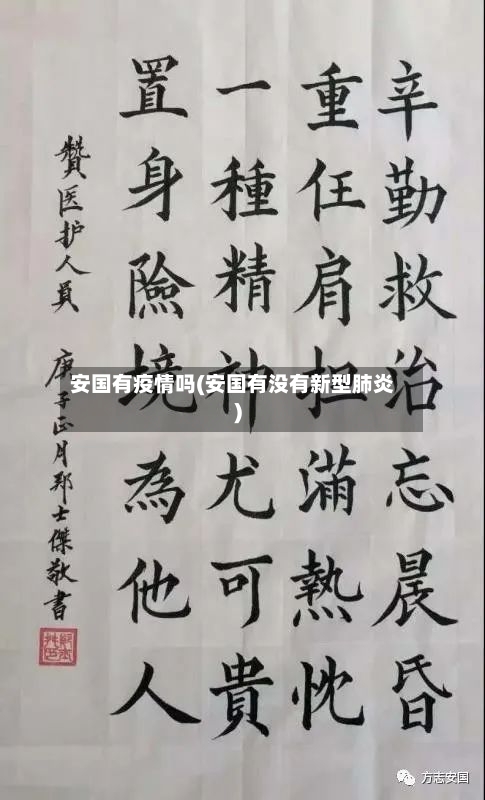 辛勤救治忘晨昏
重任肩担滿熱忱
一種精神尤可貴
置身險境為他人
贊医护人員 庚子正月郑士傑敬書
安国有疫情吗(安国有没有新型肺炎
)
方志安国